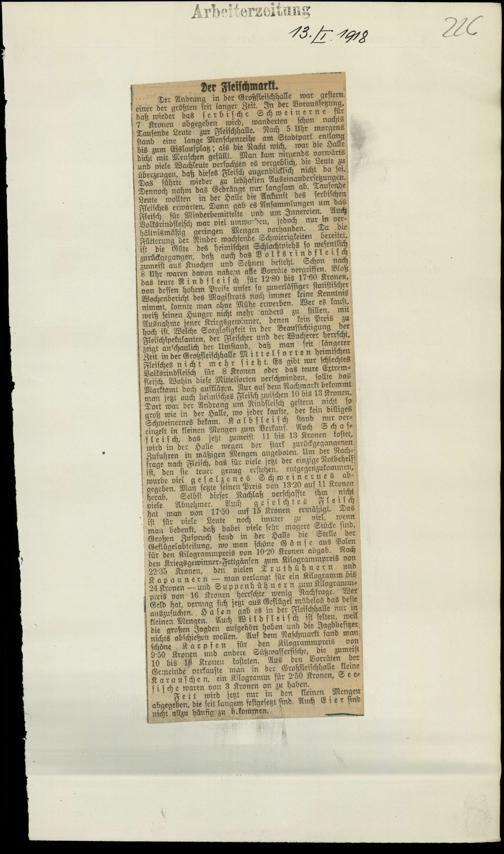 Arbeiterzeitung
13. I. 1918
226
Der Fleischmarkt.
Der Andrang in der Großfleischhalle war gestern
einer der größten seit langer Zeit. In der Voraussetzung,
daß wieder das serbische Schweinerne für
7 Kronen abgegeben wird, wanderten schon nachts
Tausende Leute zur Fleischhalle. Nach 5 Uhr morgens
stand eine lange Menschenreihe am Stadtpark entlang
bis zum Eislaufplatz; als die Nacht wich, war die Halle
dicht mit Menschen gefüllt. Man kam nirgends vorwärts
und viele Wachleute versuchten es vergeblich, die Leute zu
überzeugen, daß dieses Fleisch augenblicklich nicht da sei.
Das führte wieder zu lebhaften Auseinandersetzungen.
Dennoch nahm das Gedränge nur langsam ab. Tausende
Leute wollten in der Halle die Ankunft des serbischen
Fleisches erwarten. Dann gab es Ansammlungen um das
Fleisch für Minderbemittelte und um Innereien. Auch
Volksrindfleisch war viel umworben, jedoch nur in ver-
hältnismäßig geringen Mengen vorhanden. Da die
Fütterung der Rinder wachsende Schwierigkeiten bereitet,
ist die Güte des heimischen Schlachtviehs so wesentlich
zurückgegangen, daß auch das Volksrindfleisch
zumeist aus Knochen und Sehnen besteht. Schon nach
8 Uhr waren davon nahezu alle Vorräte vergriffen. Bloß
das teure Rindfleisch für 12·80 bis 17·60 Kronen,
von dessen hohem Preise unser so zuverlässiger statistischer
Wochenbericht des Magistrats noch immer keine Kenntnis
nimmt, konnte man ohne Mühe erwerben. Wer es kauft,
weiß seinen Hunger nicht mehr anders zu stillen, mit
Ausnahme jener Kriegsgewinner, denen kein Preis zu
hoch ist. Welche Sorglosigkeit in der Beaufsichtigung der
Fleischspekulanten, der Fleischer und der Wucherer herrscht,
zeigt anschaulich der Umstand, daß man seit längerer
Zeit in der Großfleischhalle Mittelsorten heimischen
Fleisches nicht mehr sieht. Es gibt nur schlechtes
Volksrindfleisch für 8 Kronen oder das teure Extrem-
fleisch. Wohin diese Mittelsorten verschwinden, sollte das
Marktamt doch aufklären. Nur auf dem Naschmarkt bekommt
man jetzt auch heimisches Fleisch zwischen 10 bis 13 Kronen.
Dort war der Andrang um Rindfleisch gestern nicht so
groß wie in der Halle, wo jeder kaufte, der kein billiges
Schweinernes bekam. Kalbfleisch stand nur ver-
einzelt in kleinen Mengen zum Verkauf. Auch Schaf-
fleisch, das jetzt zumeist 11 bis 13 Kronen kostet,
wird in der Halle wegen der stark zurückgegangenen
Zufuhren in mäßigen Mengen angeboten. Um der Nach-
frage nach Fleisch, das für viele jetzt der einzige Notbehelf
ist, den sie teuer genug erstehen, entgegenzukommen,
wurde viel gesalzenes Schweinernes ab-
gegeben. Man setzte seinen Preis von 13·20 auf 11 Kronen
herab. Selbst dieser Nachlaß verschaffte ihm nicht
viele Abnehmer. Auch geselchtes Fleisch
hat man von 17·50 auf 15 Kronen ermäßigt. Das
ist für viele Leute noch immer zu viel, wenn
man bedenkt, daß dabei viele sehr magere Stücke sind.
Großen Zuspruch fand in der Halle die Stelle der
Geflügelabteilung, wo man schöne Gänse aus Polen
für den Kilogrammpreis von 10·20 Kronen abgab. Nach
den Kriegsgewinner-Fettgänsen zum Kilogrammpreis von
22·35 Kronen, den vielen Truthühnern und
Kapaunern — man verlangt für ein Kilogramm bis
24 Kronen — und Suppenhühnern zum Kilogramm-
preis von 16 Kronen herrschte wenig Nachfrage. Wer
Geld hat, vermag sich jetzt aus Geflügel mühelos das beste
auszusuchen. Hasen gab es in der Fleischhalle nur in
kleinen Mengen. Auch Wildfleisch ist selten, weil
die großen Jagden aufgehört haben und die Jagdbesitzer
nichts abschießen wollen. Auf dem Naschmarkt fand man
schöne Karpfen für den Kilogrammpreis von
9·50 Kronen und andere Süßwasserfische, die zumeist
10 bis Kronen kosteten. Aus den Vorräten der
Gemeinde verkaufte man in der Großfleischhalle kleine
Karauschen, ein Kilogramm für 2·50 Kronen, See-
fische waren von 3 Kronen an zu haben.
Fett wird jetzt nur in den kleinen Mengen
abgegeben, die seit langem festgesetzt sind. Auch Eier sind
nicht allzu häufig zu bekommen.